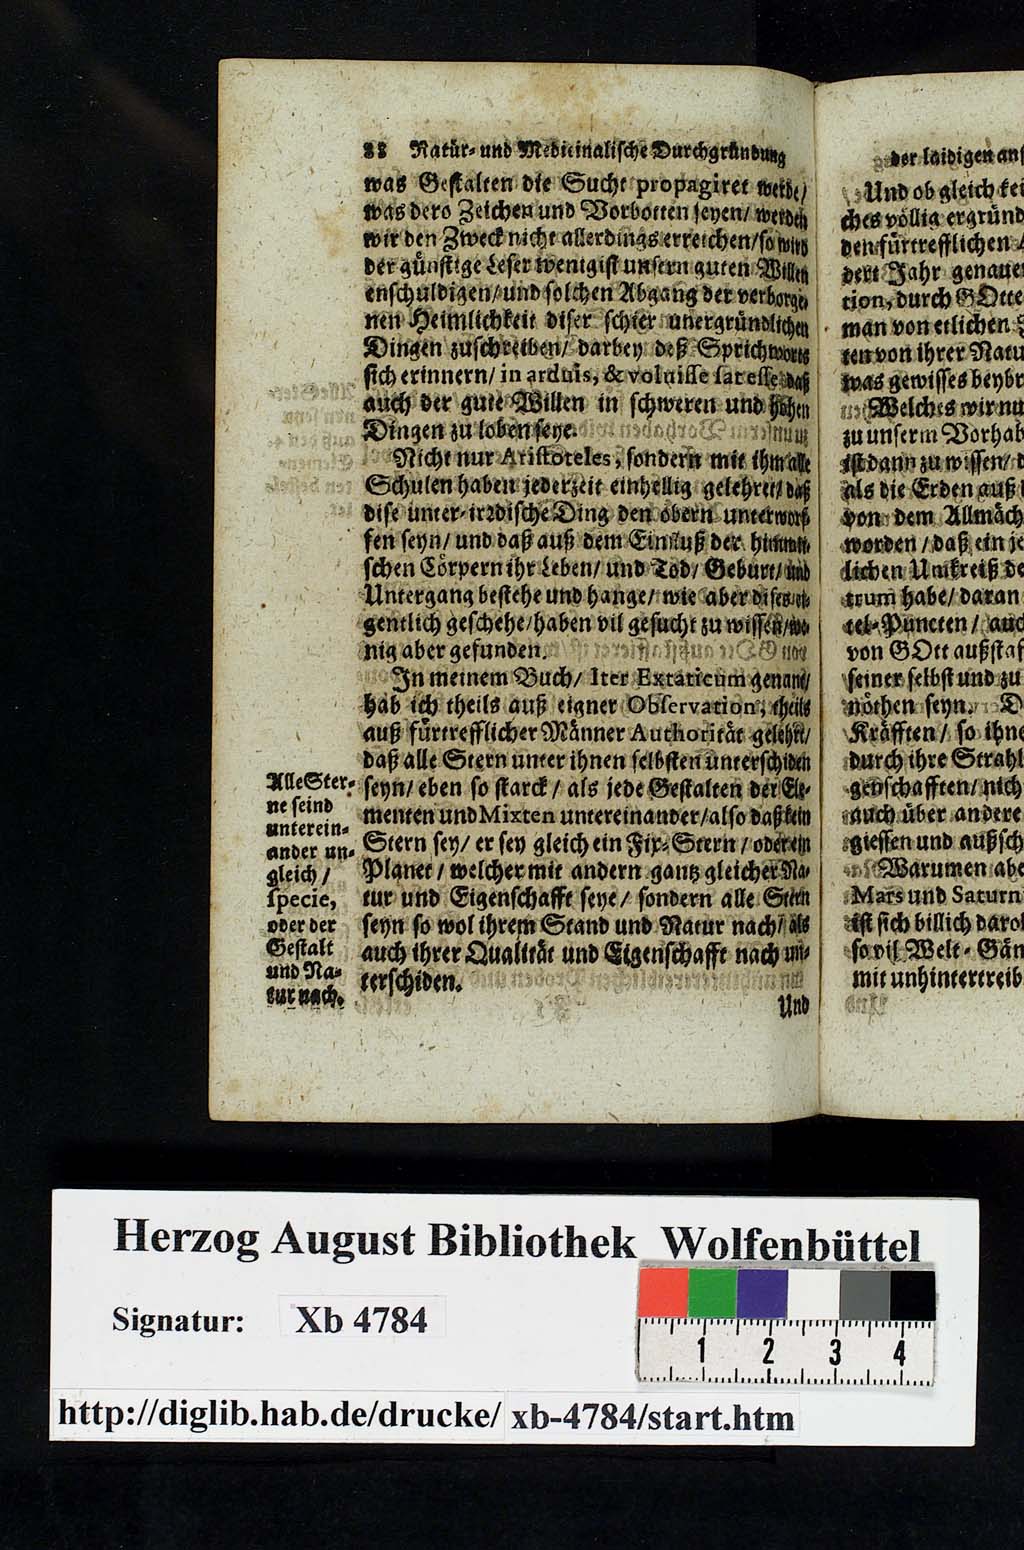 88 Natür- und Medicinalische Durchgründung
was Gestalten die Sucht propagiret werde/
was dero Zeichen und Vorbotten seyen/ werden
wir den Zweck nicht allerdings erreichen/ so wird
der günstige Leser wenigist unsern guten Willen
enschuldigen/ und solchen Abgang der verborge-
nen Heimlichkeit diser schier unergründlichen
Dingen zuschreiben/ darbey deß Sprichworts
sich erinnern/ in arduis, & voluisse sat esse daß
auch der gute Willen in schweren und hohen
Dingen zu loben seye.
Nicht nur Aristoteles, sondern mit ihm alle
Schulen haben jederzeit einhellig gelehret/ daß
dise unter-irrdische Ding den obern unterworf-
fen seyn/ und daß auß dem Einfluß der himmli-
schen Cörpern ihr Leben/ und Tod/ Geburt/ und
Untergang bestehe und hange/ wie aber dises ei-
gentlich geschehe/ haben vil gesucht zu wissen/ we-
nig aber gefunden.
In meinem Buch/ Iter Extaticum genant/
hab ich theils auß eigner Observation, theils
auß fürtrefflicher Männer Authorität gelehrt/
daß alle Stern unter ihnen selbsten unterschiden
seyn/ eben so starck/ als jede Gestalten der Ele-
menten und Mixten untereinander/ also daß kein
Stern sey/ er sey gleich ein Fix-Stern/ oder ein
Planet/ welcher mit andern gantz gleicher Na-
tur und Eigenschafft seye/ sondern alle Stern
seyn so wol ihrem Stand und Natur nach/ als
auch ihrer Qualität und Eigenschafft nach un-
terschiden.
Und
Alle Ster-
ne seind
unterein-
ander un-
gleich/
specie,
oder der
Gestalt
und Na-
tur nach.
der laidigen
Und ob gleich
ches völlig
den fürtrefflichen
dert Jahr
tion, durch GOtte
man von etlichen
ten von ihrer
was gewisses
Welches wir
zu unserm
ist dann zu wissen/
als die Erden auß
von dem
worden/ daß ein
lichen Umkreiß
trum habe/ daran
tel-Puncten/
von GOtt
seiner selbst und zu
nöthen seyn.
Kräfften/ so
durch ihre
genschafften/
auch über andere
giessen und
Warumen
Mars und
ist sich billich
so vil Welt-
mit
Herzog August Bibliothek Wolfenbüttel
Signatur: Xb 4784
1 2 3 4
http://diglib.hab.de/drucke/ xb-4784/start.htm